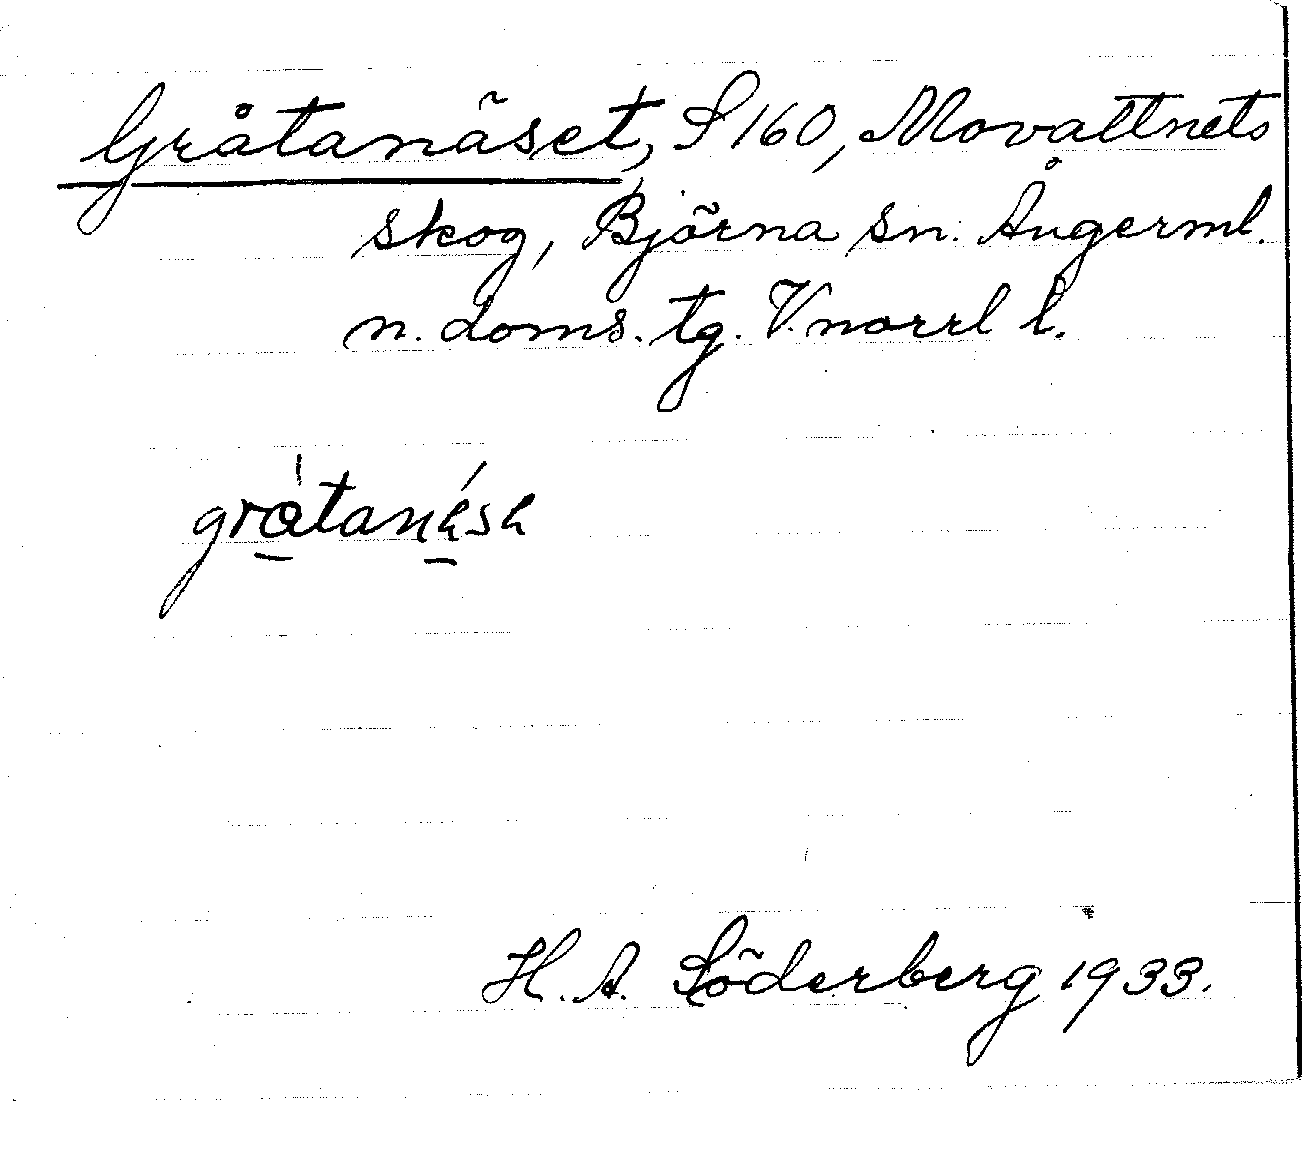 Gråtanäset, S 160, Movattnets
skog, Björna sn. Ångerml.
n. doms. tg. V.norrl l.
H. A. Söderberg 1933.